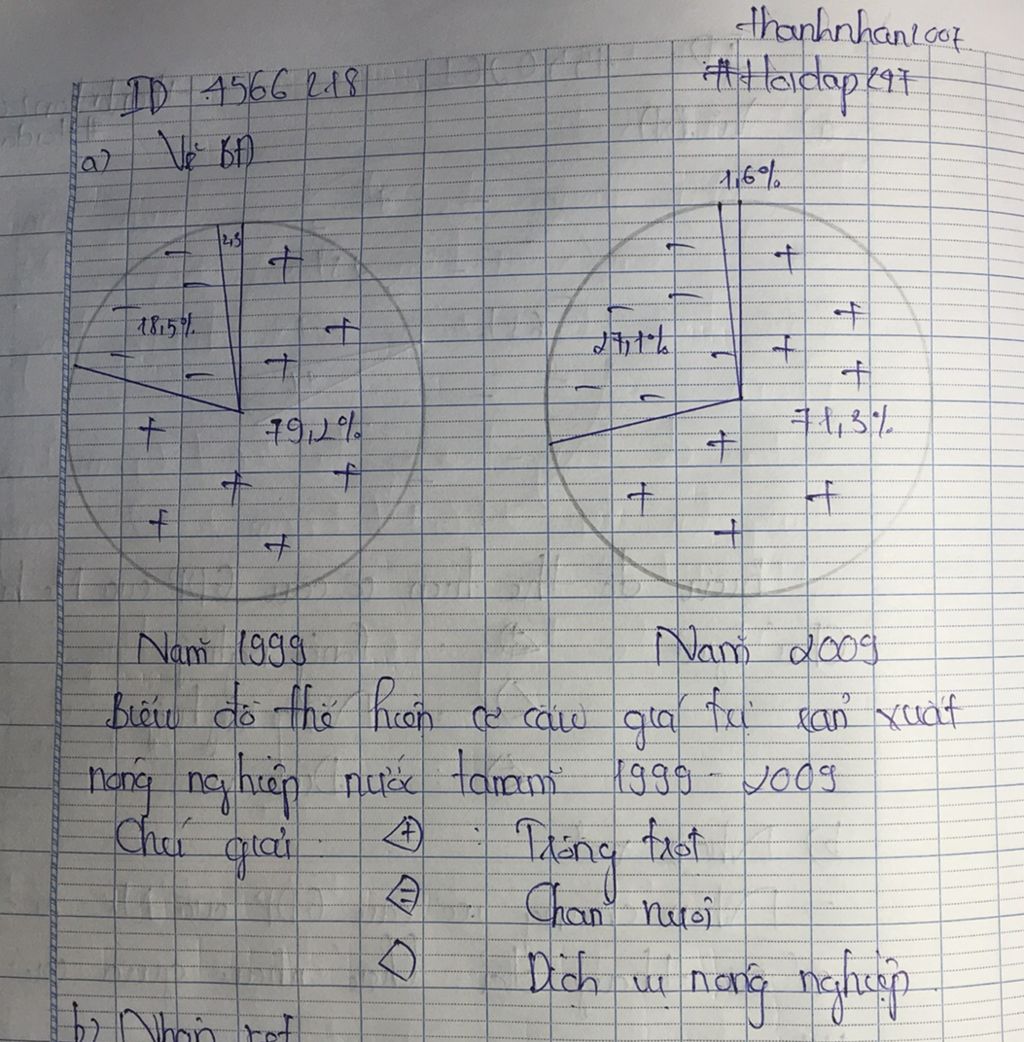 thanhnhan2007
ID 4566218
#Hoidap247
a) Vẽ BĐ
1,6%
2,3
18,5%
79,2%
27,1%
71,3%
Năm 1999
Năm 2009
Biểu đồ thể hiện cơ cấu giá trị sản xuất
nông nghiệp nước ta năm 1999 - 2009
Chú giải
+ : Trồng trọt
= : Chăn nuôi
Dịch vụ nông nghiệp
b) Nhận xét